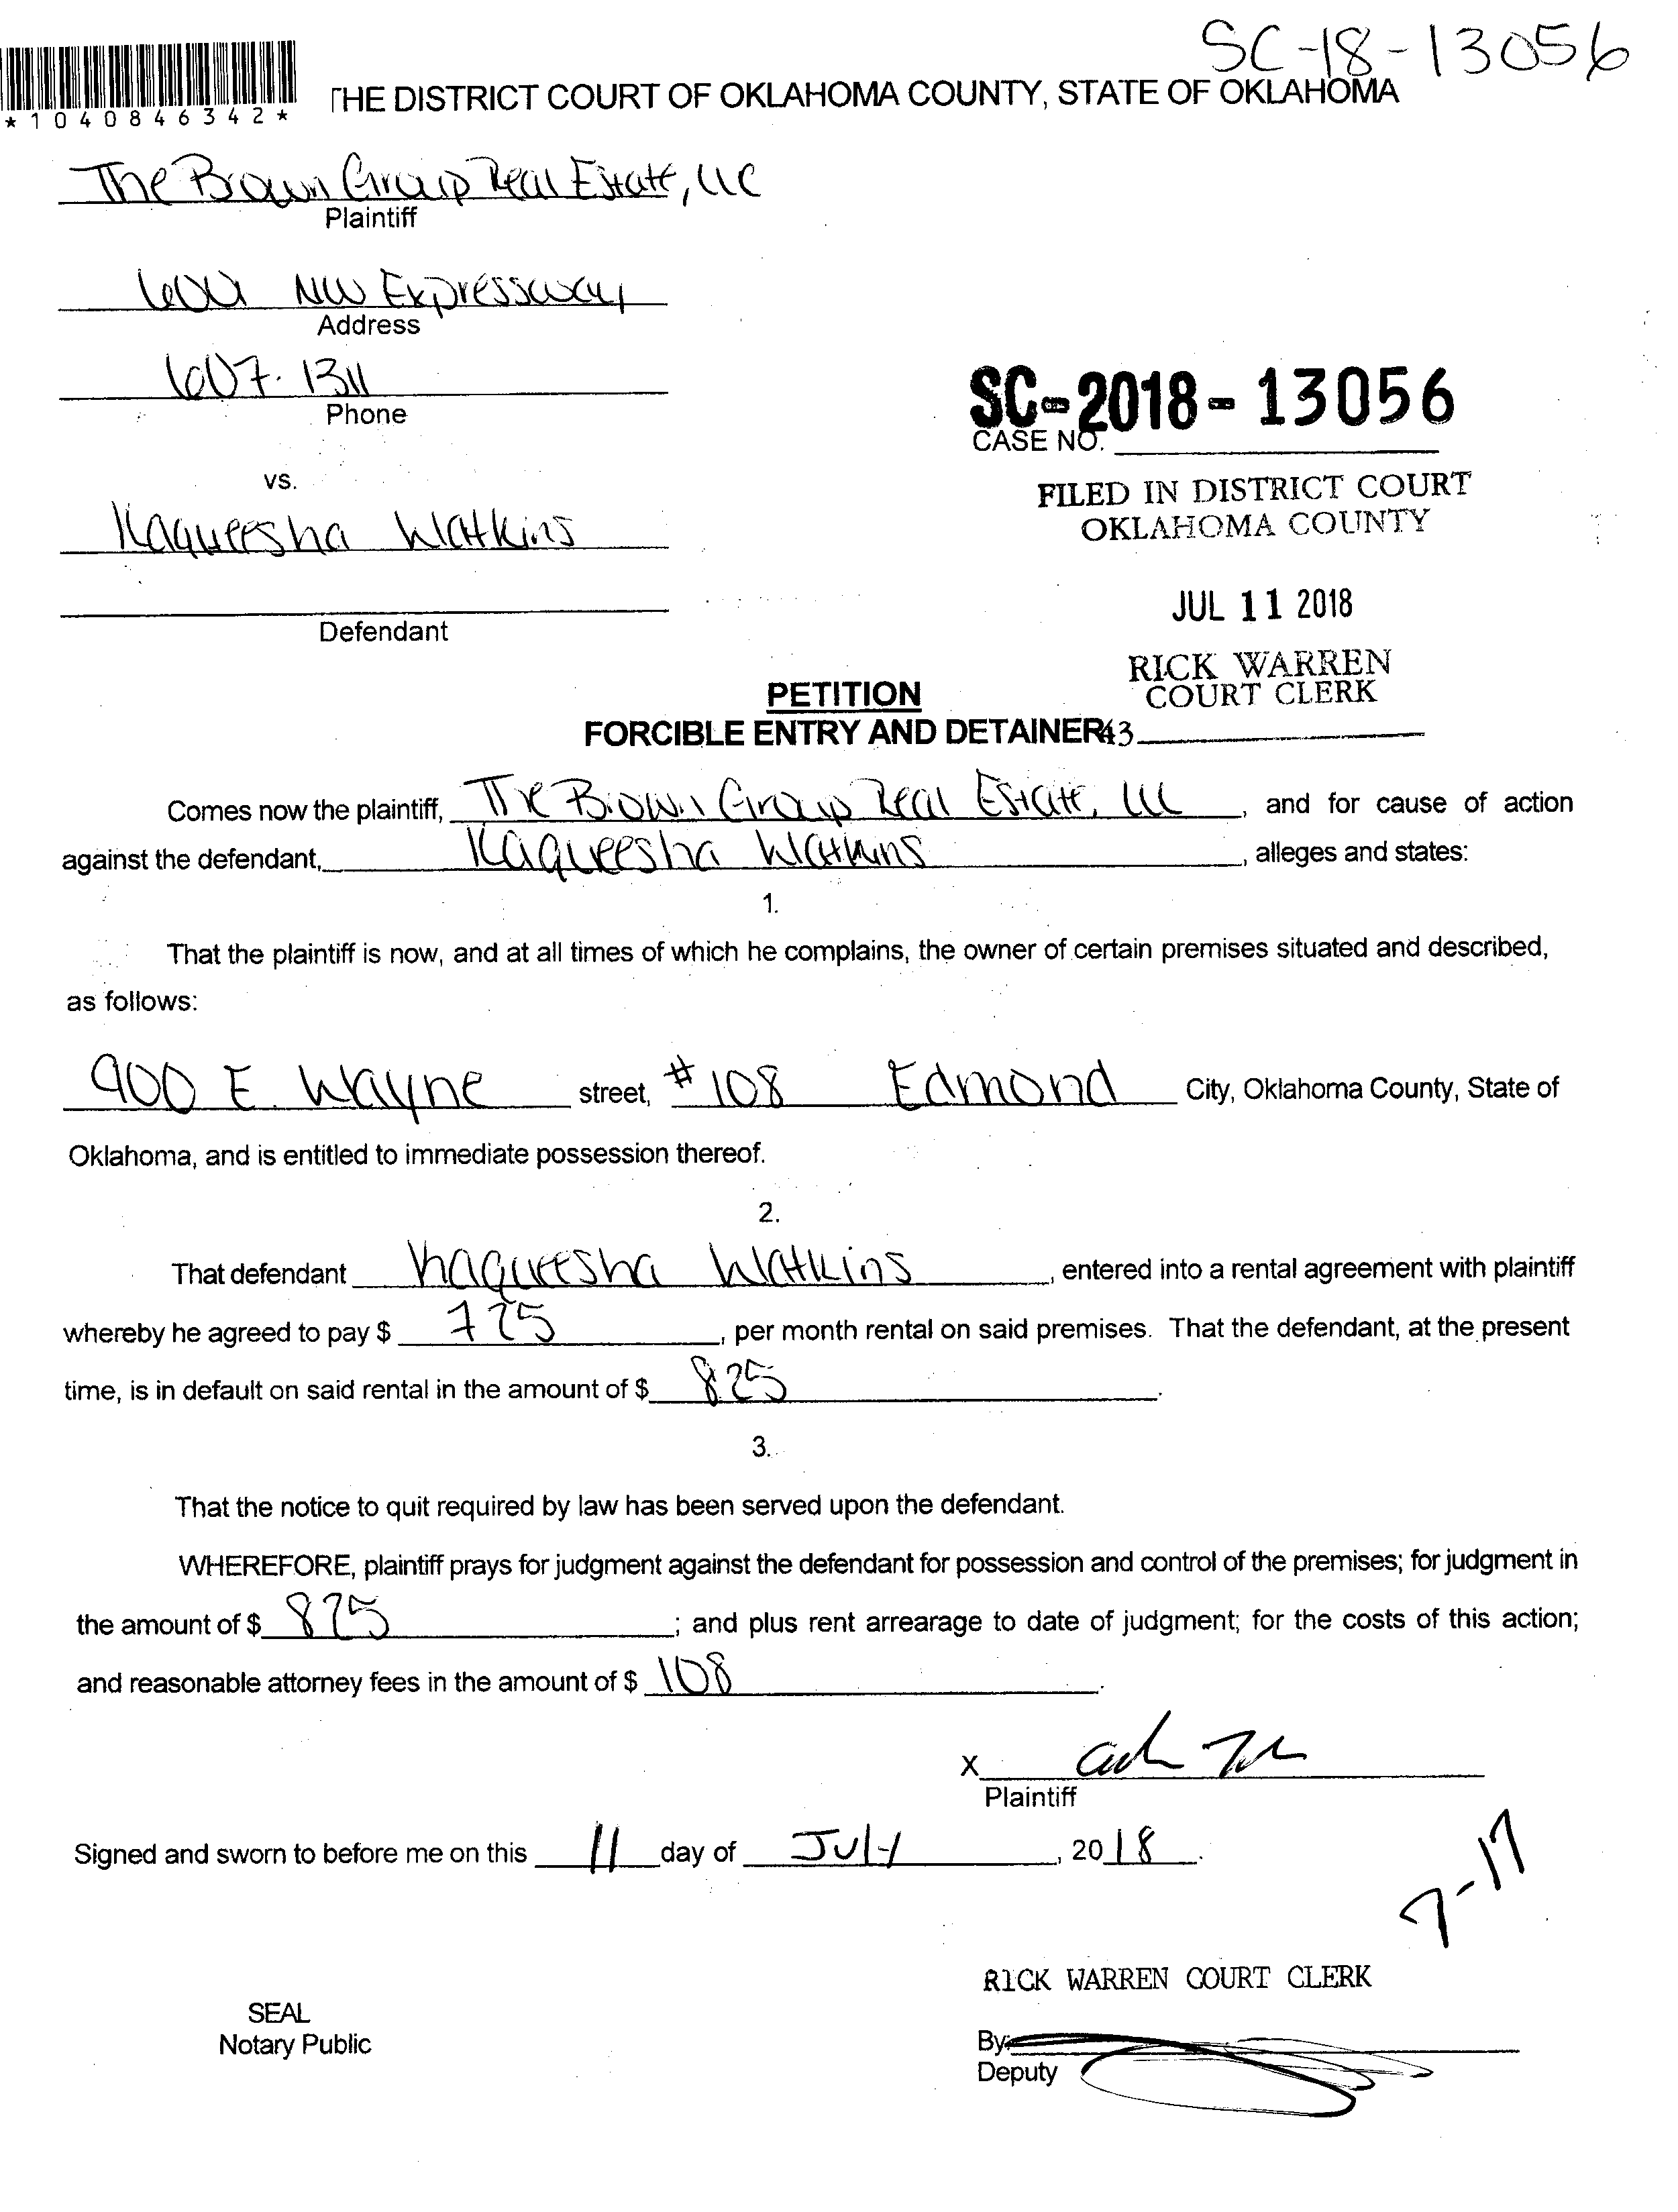 SC-18-13056
*1040846342*
THE DISTRICT COURT OF OKLAHOMA COUNTY, STATE OF OKLAHOMA
The Brown Group Real Estate, LLC
Plaintiff
NW Expressway
Address
607-1311
Phone
SC-2018-13056
CASE NO.
vs.
FILED IN DISTRICT COURT
OKLAHOMA COUNTY
Kaqueesha Watkins
JUL 11 2018
Defendant
RICK WARREN
COURT CLERK
PETITION
FORCIBLE ENTRY AND DETAINER 43
Comes now the plaintiff, The Brown Group Real Estate, LLC, and for cause of action
against the defendant, Kaqueesha Watkins, alleges and states:
1.
That the plaintiff is now, and at all times of which he complains, the owner of certain premises situated and described,
as follows:
900 E. Wayne street, #108 Edmond City, Oklahoma County, State of
Oklahoma, and is entitled to immediate possession thereof.
2.
That defendant Kaqueesha Watkins, entered into a rental agreement with plaintiff
whereby he agreed to pay $ 725, per month rental on said premises. That the defendant, at the present
time, is in default on said rental in the amount of $ 825.
3.
That the notice to quit required by law has been served upon the defendant.
WHEREFORE, plaintiff prays for judgment against the defendant for possession and control of the premises; for judgment in
the amount of $ 825; and plus rent arrearage to date of judgment; for the costs of this action;
and reasonable attorney fees in the amount of $ 108.
X
Plaintiff
Signed and sworn to before me on this 11 day of July, 2018.
7-17
RICK WARREN COURT CLERK
SEAL
Notary Public
By:
Deputy